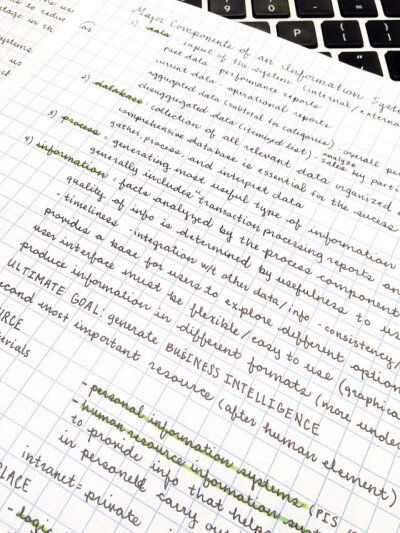 Major Components of an Information Syste
1) data - input of the system (internal / externa
past data - performance reports
current data - operational reports
aggregated data (subtotal for categories) - overall per
disaggregated data (itemized list) - analyze sales by parti
2) database - collection of all relevant data organized
comprehensive database is essential for the sucess
3) process - gather, process, and interpret data
generating most useful type of information
generally includes transaction processing reports an
4) information - facts analyzed by the process component
quality of info is determined by usefulness to us
- timeliness - integration w/t other data/info - consistency/
provides a base for users to explore different option
user interface must be flexible / easy to use (graphica
produce information in different formats (more under
ULTIMATE GOAL: generate BUSINESS INTELLIGENCE
econd most important resource (after human element)
URCE
terials
- personal information systems (PIS
- human resource information syst
to provide info that helps
in personell carry ou
intranet = private
PLACE
- logi